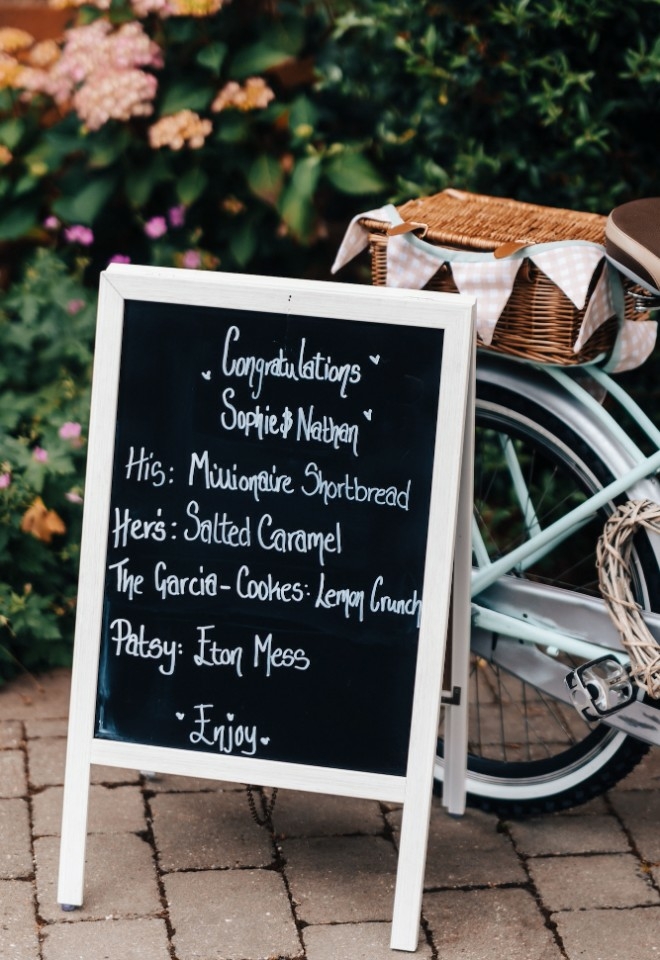 Congratulations
Sophie & Nathan
His: Millionaire Shortbread
Her's: Salted Caramel
The Garcia-Cookes: Lemon Crunch
Patsy: Eton Mess
Enjoy